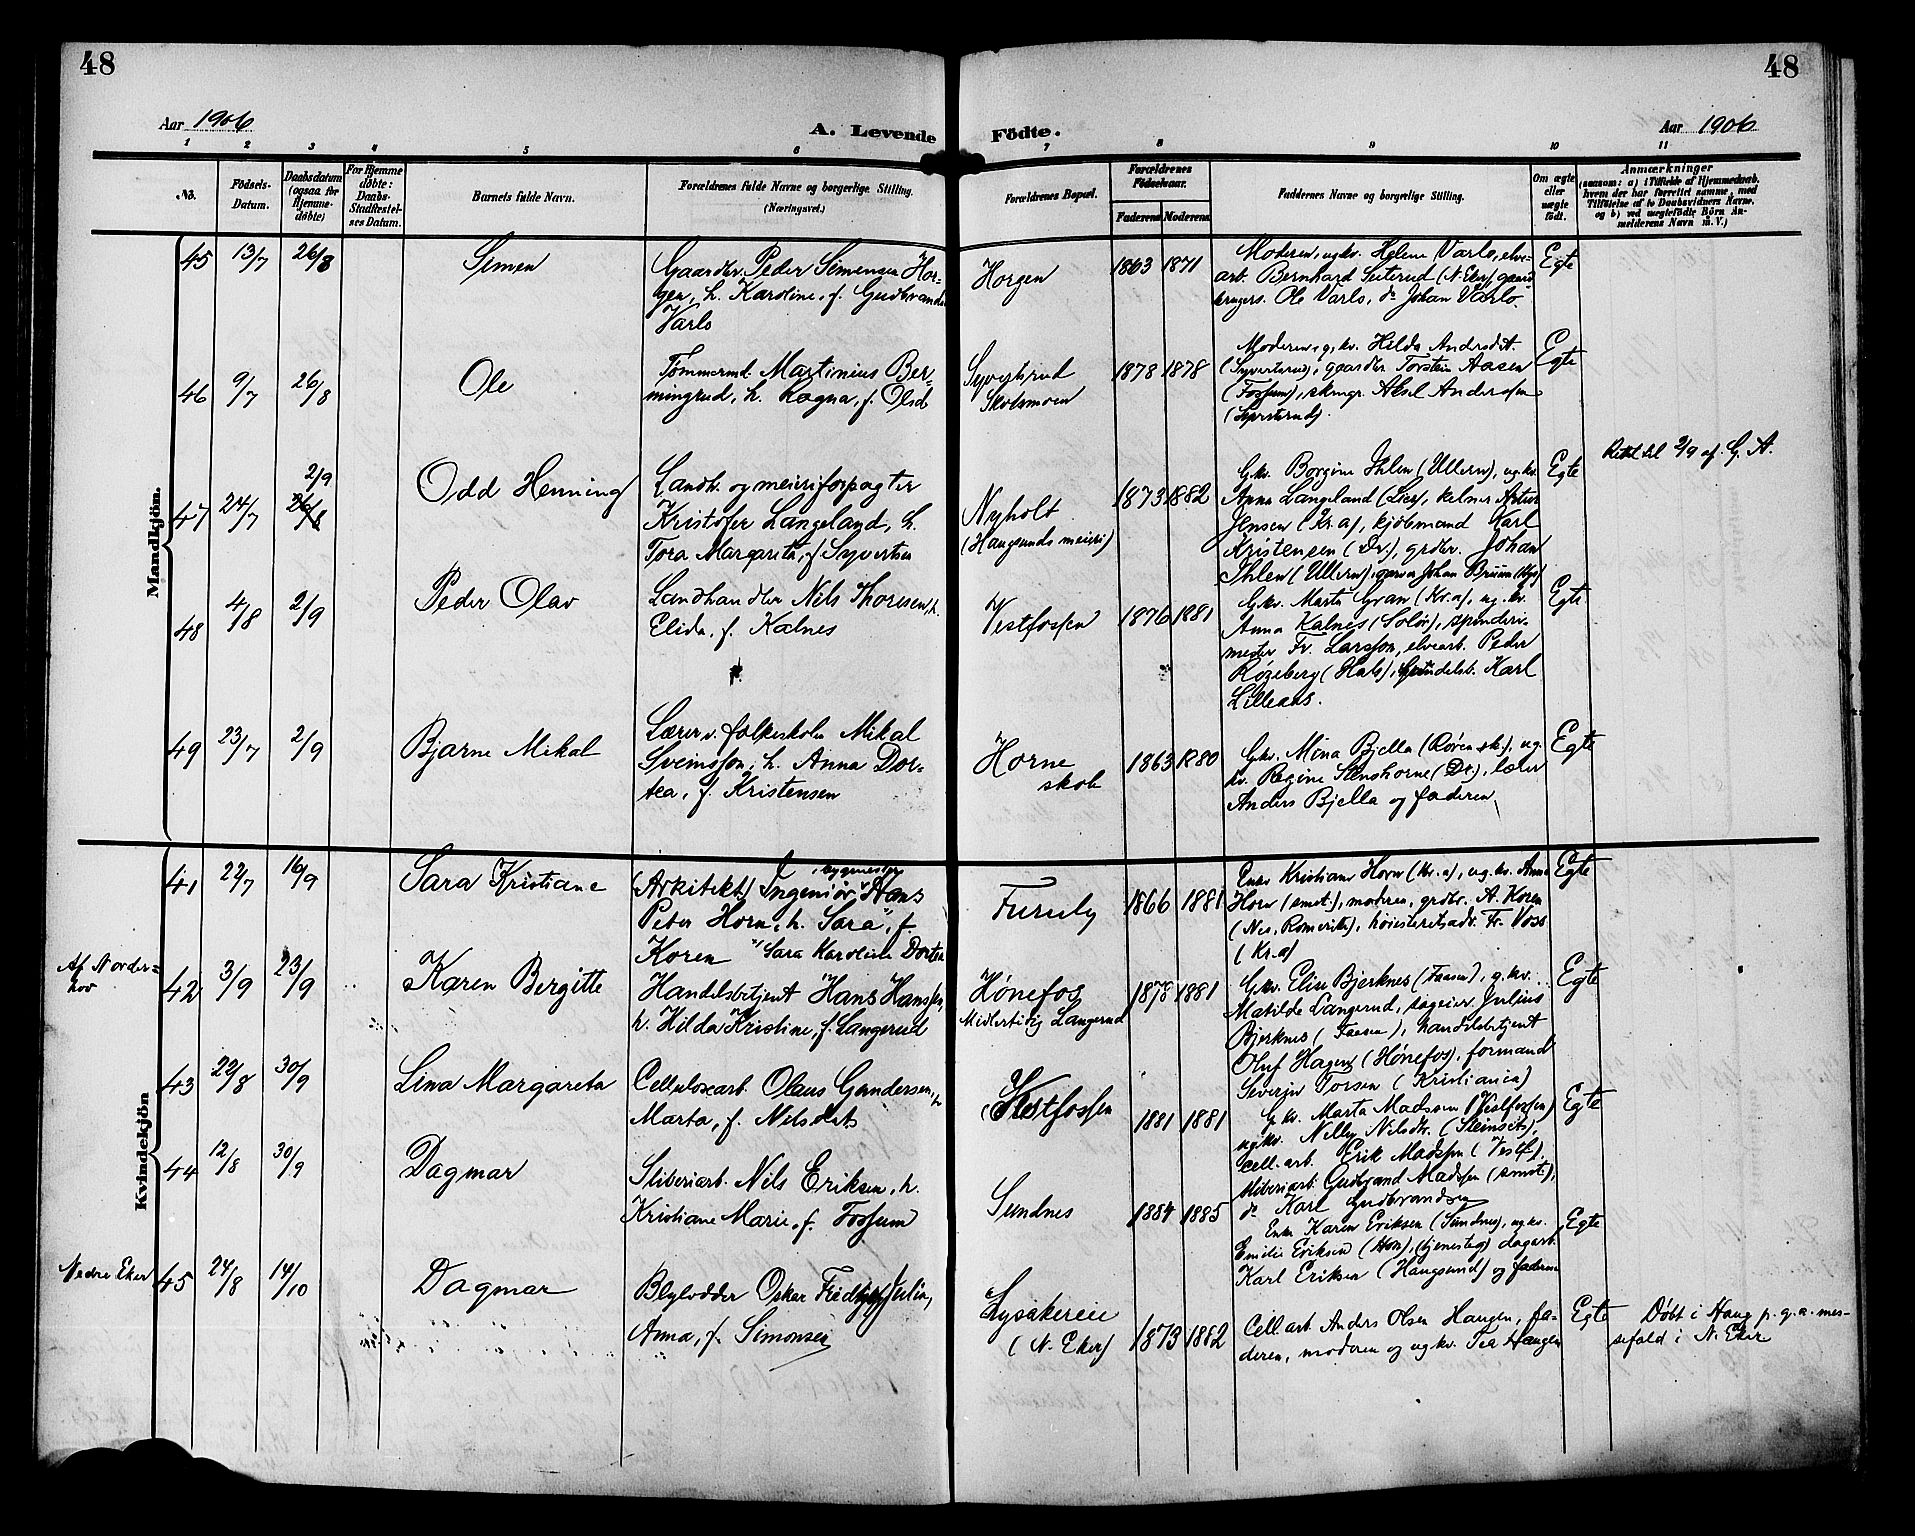 48
48
Aar 1906
A. Levende Födte.
Aar 1906
1 2 3 4 5 6 7 8 9 10 11
No.
Födsels-Datum.
Daabsdatum (ogsaa for Hjemmedöbte)
For Hjemmedöbte: Daabs-Stadfæstelses Datum.
Barnets fulde Navn.
Forældrenes fulde Navne og borgerlige Stilling. (Næringsvei.)
Forældrenes Bopæl.
Forældrenes Födselsaar.
Faderens Moderens
Faddernes Navne og borgerlige Stilling.
Om ægte eller uægte födt.
Anmærkninger
(saasom: a) i Tilfælde af Hjemmedaab, hvem der har forrettet samme, med Tilföielse af to Daabsvidners Navne, og b) ved uægtefödte Börn Anmelderens Navn m. V.)
Mandkjön.
45 13/7 26/8 Simen
Gaardbr. Peder Simensen Hor-
gen, h. Karoline, f. Gudbrands
Varlo
Horgen
1863 1871
Moderen, ugkv. Helene Varlo, elve-
arb. Bernhard Seterud (N. Eker), gaard
brugers. Ole Varlo, do Johan Varlo.
Egte
46 9/7 26/8 Ole
Tømmermd. Martinius Ber-
mingrud, h. Ragna, f. Olsd
Syvertsrud
Skotsmoen
1878 1878
Moderen, gkv. Hilda Andersdt.
(Syvertsrud), gaardbr Torstein Aasen
(Fossum), skmgr. Aksel Andersen
(Syvertsrud).
Egte
47 24/7 2/9 26/8 Odd Henning
Landh. og meieriforpagter
Kristofer Langeland, h.
Tora Margareta, f. Syvertsen
Nyholt
(Haugsunds meieri)
1873 1882
Gkv. Borgine Ihlen (Ullern), ugkv.
Anna Langeland (Lier), kelner Artur
Jensen (Kr.a), kjøbmand Karl
Kristensen (Dr.), grdbr. Johan
Ihlen (Ullern), garver Johan Bruun
Egte
Rettet til 2/9 af G. A.
48 4/8 2/9 Peder Olav
Landhandler Nils Thoresen, h.
Elida, f. Kalnes
Vestfossen
1876 1881
Gkv. Marta Gran (Kr.a), ug. kv.
Anna Kalnes (Solør), spinderi-
mester Fr. Larsson, elvearb. Peder
Røgeberg (Hals), Karl
Lilleaas.
Egte
49 23/7 2/9 Bjarne Mikal
Lærer v. folkeskolen Mikal
Sveinsson, h. Anna Dor-
tea, f. Kristensen
Horne
skole
1863 1880
Gkv. Mina Bjella (Røren sk.), ug.
kv. Regine Stenshorne (Dr.), lærer
Anders Bjella og faderen.
Egte
Kvindekjön
41 22/7 16/9 Sara Kristiane
bygmester
(Arkitekt) Ingeniør Hans
Peter Horn, h. Sara, f.
Koren Sara Karoline Dortea
Furuly
1866 1881
Enke Kristiane Horn (Kr.a), ug.kv. Anna
Horn (smst.), moderen, grdbr. A. Koren
(Nes, Romerike), høiesteretsadv. Fr. Voss
(Kr.a)
Egte
Af Norder-
hov
42 3/9 23/9 Karen Bergitte
Handelsbetjent Hans Hanssen,
h. Hilda Kristine, f. Langerud
Hønefos
Midlertidig Langerud
1878 1881
Gkv. Elise Bjerknes (Faasen), g.kv.
Matilde Langerud, sageier Julius
Bjerknes (Faasen), handelsbetjent
Oluf Hagen (Hønefos), formand
Severin Torsen (Kristiania)
Egte
43 22/8 30/9 Lina Margareta
Cellulosearb. Olaus Gundersen, h
Marta, f. Nilsdat
Vestfossen
1881 1881
Gkv. Marta Madssen (Vestfossen)
ugkv. Nelly Nilsdtr. (Steinset),
cell. arb. Erik Madssen (Vestf.),
sliberiarb. Gudbrand Madssen (smst.),
do Karl Gudbrandsen
Egte
44 12/8 30/9 Dagmar
Sliberiarb. Nils Eriksen, h.
Kristiane Marie, f. Fossum
Sundnes
1884 1885
Enke Karen Eriksen (Sundnes), ugkv.
Emilie Eriksen (Hon), (tjenesteg) dagarb.
Karl Eriksen (Haugsund) og faderen
Egte
Nedre Eker
45 24/8 14/10 Dagmar
Blylodder Oskar Julin,
Anna, f. Simonsen
Lysakereie
(N. Eker)
1873 1882
Cell. arb. Anders Olsen Haugen, fa-
deren, moderen og ugkv. Tea Haugen
Egte
Døbt i Haug p. g. a. mes-
sefald i N. Eker